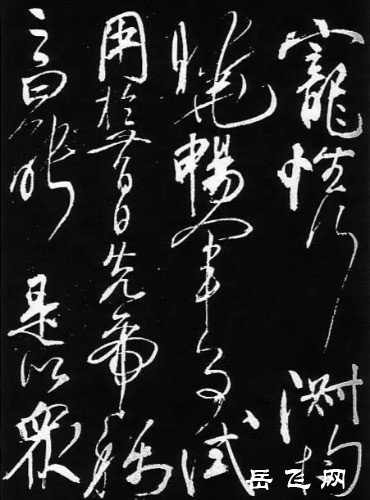 寵性行淑均
曉暢軍事試
用於昔日先帝稱
之曰能是以眾
岳飞网